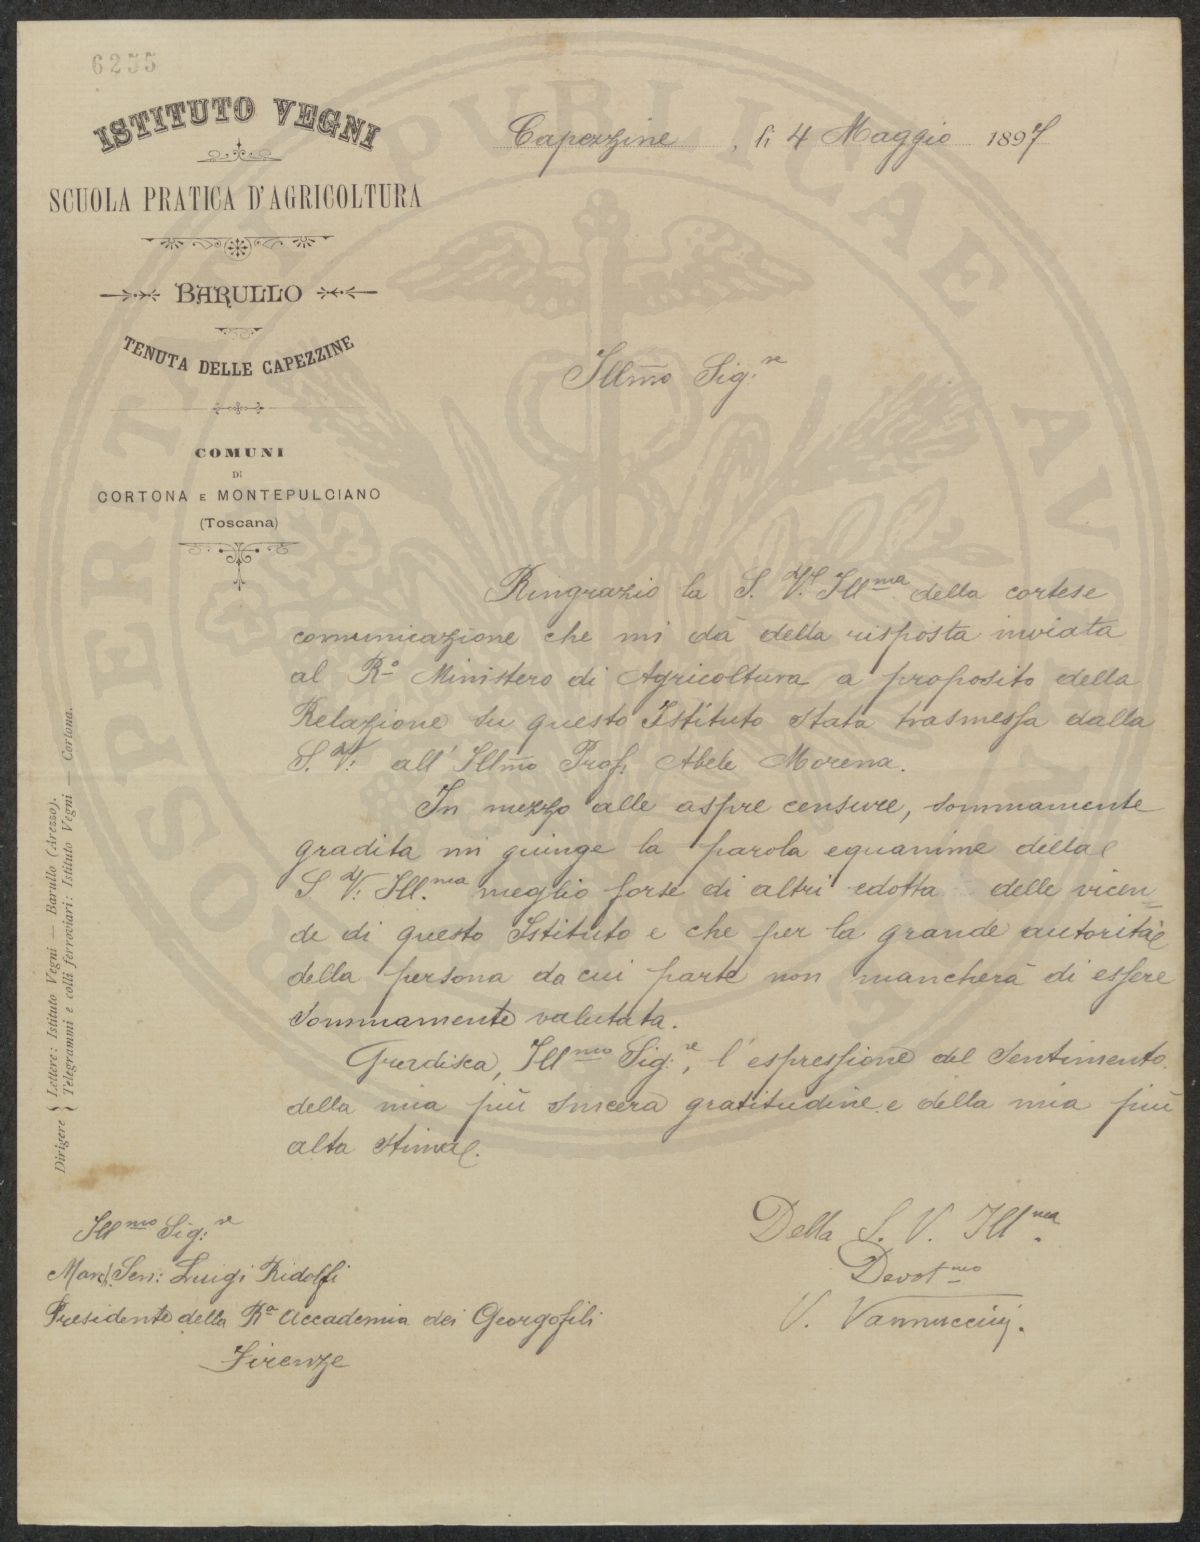 6255
ISTITUTO VEGNI
SCUOLA PRATICA D'AGRICOLTURA
BARULLO
TENUTA DELLE CAPEZZINE
COMUNI
DI
CORTONA E MONTEPULCIANO
(Toscana)
Capezzine, li 4 Maggio 1897
Illmo Sig.re
Ringrazio la S. V. Illma della cortese
comunicazione che mi dà della risposta inviata
al Ro Ministero di Agricoltura a proposito della
Relazione su questo Istituto stata trasmessa dalla
S. V. all'Illmo Prof. Abele Morena.
In mezzo alle aspre censure, sommamente
gradita mi giunge la parola equanime della
S V. Ill.ma meglio forse di altri edotta delle vicen-
de di questo Istituto e che per la grande autorità
della persona da cui parte non mancherà di essere
sommamente valutata.
Gradisca, Illmo Sig.re, l'espressione del sentimento
della mia più sincera gratitudine e della mia più
alta stima.
Della S. V. Illma.
Devotmo
V. Vannuccini.
Illmo Sig.re
March. Sen: Luigi Ridolfi
Presidente della Ra Accademia dei Georgofili
Firenze
Dirigere { Lettere: Istituto Vegni — Barullo (Arezzo).
Telegrammi e colli ferroviari: Istituto Vegni — Cortona.
PROSPERITATI PUBLICAE AUGENDAE